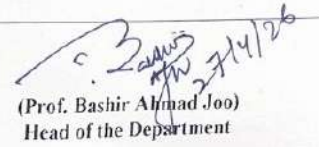 27/4/26
(Prof. Bashir Ahmad Joo)
Head of the Department